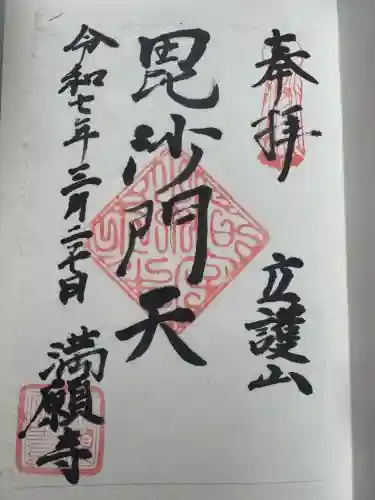 奉拝
立護山
毘沙門天
令和七年三月二十日
満願寺